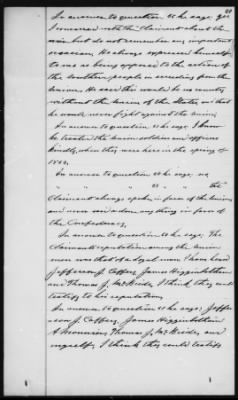 In answer to question he says yes
I conversed with the Claimant about the
war but do not remember any important
occasion. He always expressed himself
to me as being opposed to the action of
the Southern people in seceding from the
Union. He said this would be no country
without the Union of the States and that
he would never fight against the Union
In answer to question he says I know
he treated the Union soldiers and officers
kindly, when they were here in the spring of
In answer to question he says, no
the
Claimant always spoke in favor of the Union
and never said or done any thing in favor of
the Confederacy.
In answer to question he says, The
Claimants reputation among the Union
men was that of a loyal man I have heard
Jefferson J. Coffery, James Higginbotham
and Thomas J. McBride, I think they could
testify to his reputation,
In answer to question he says; Jeffer
son J. Coffery, James Higginbotham
Thomas J. McBride, and
myself, I think they could testify